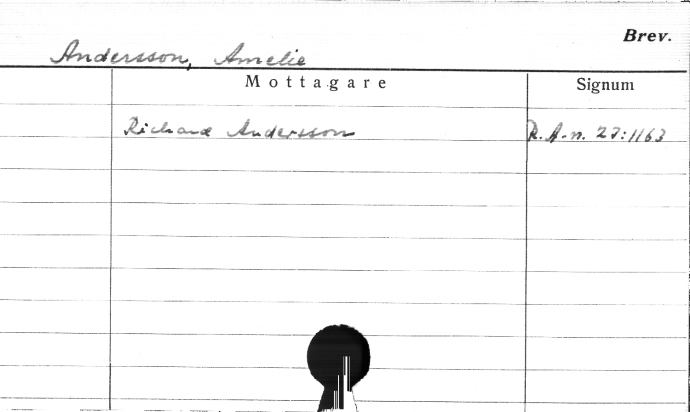 Brev.
Andersson, Amelie
Mottagare Signum
Richard Andersson R. A-n. 27:1163